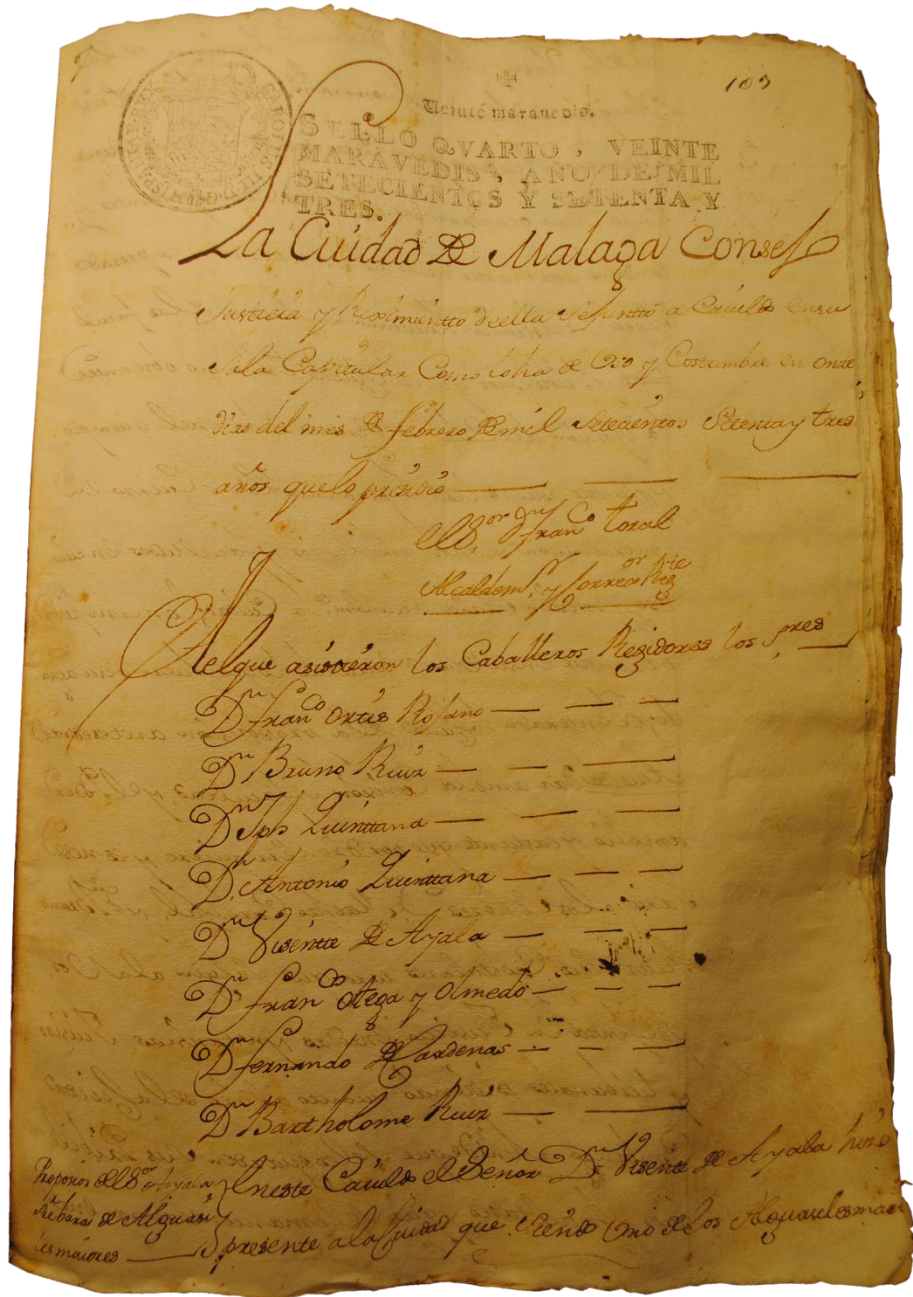 103
Veinte maravedis.
SELLO QVARTO, VEINTE
MARAVEDIS, AÑO DE MIL
SETECIENTOS Y SETENTA Y
TRES.
La Ciudad de Malaga Consejo
Justicia y Reximientto de ella se Junttó a Cavildo en su
Sala Capitular Como lo ha de Uso y Costumbre en onze
dias del mes de febrero de mil Setecientos Setenta y tres
años que lo presidió
el Sor. Dn. Franco. toral
Alcalde mr. y Correxor. Ynte
Al que asistieron los Caballeros Regidores los sres
Dn. Franco. Ortis Rosano
Dn. Bruno Ruiz
Dn. Jph Quinttana
Dn. Antonio Quinttana
Dn. Visentte de Ayala
Dn. Franco. Ortega y Olmedo
Dn. fernando de Cardenas
Dn. Bartholome Ruiz
En este Cavildo el Señor Dn. Visente de Ayala hiso
presente a la Ciudad que siendo uno de los Alguasiles mai
del Sor. Ayala
baras de Alguasi
les maiores